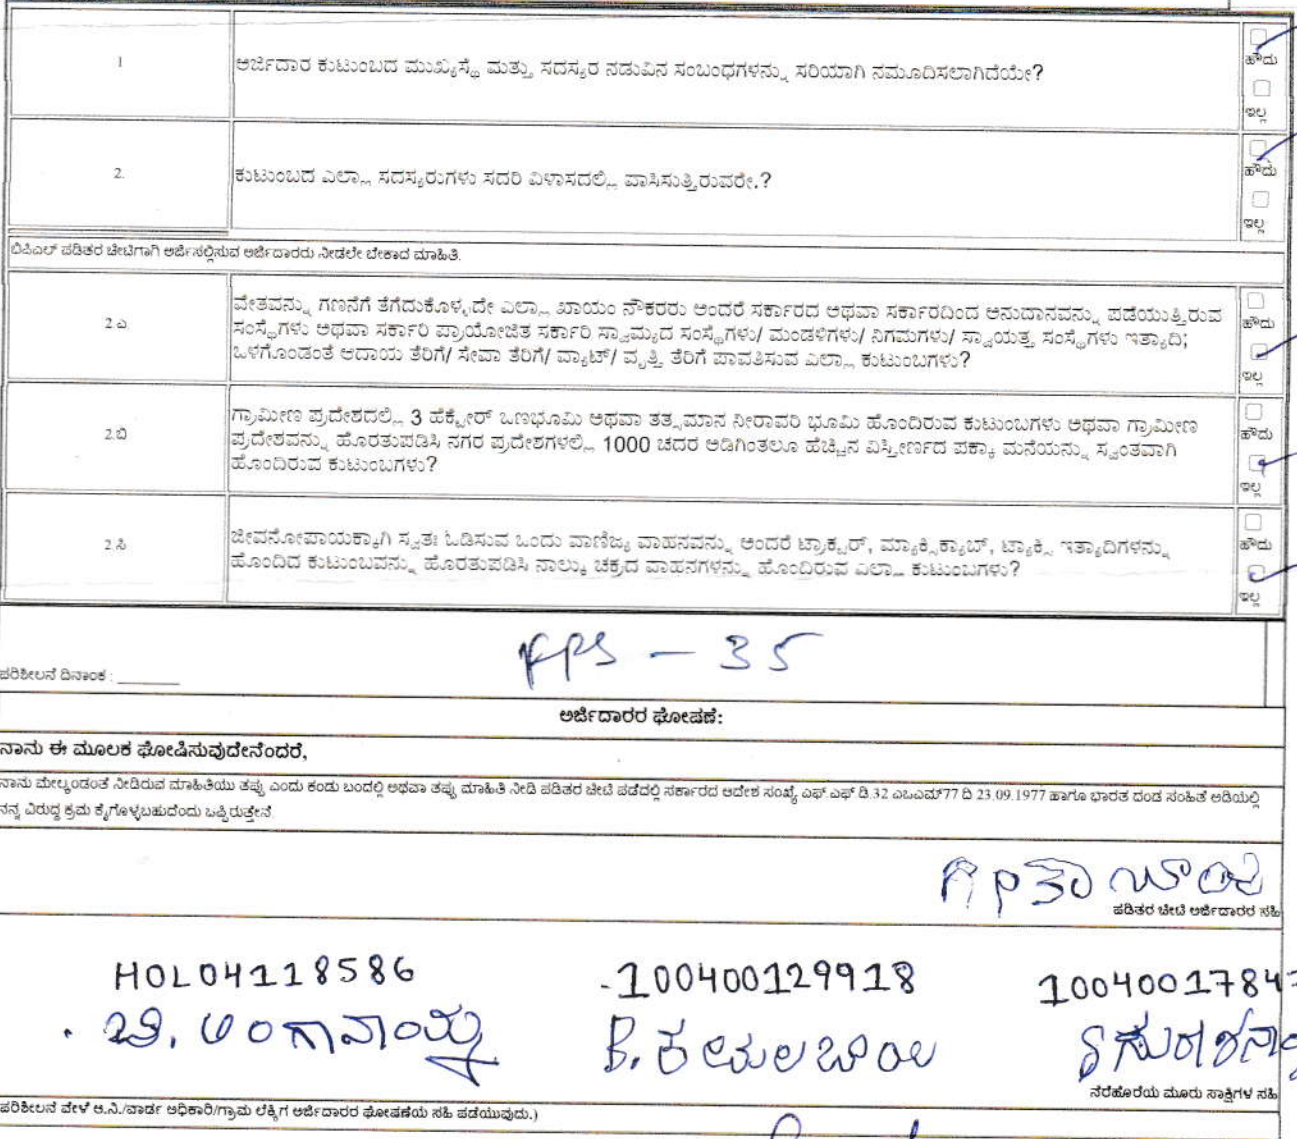 1
ಅರ್ಜಿದಾರ ಕುಟುಂಬದ ಮುಖ್ಯಸ್ಥೆ ಮತ್ತು ಸದಸ್ಯರ ನಡುವಿನ ಸಂಬಂಧಗಳನ್ನು ಸರಿಯಾಗಿ ನಮೂದಿಸಲಾಗಿದೆಯೇ?
ಹೌದು
ಇಲ್ಲ
2.
ಕುಟುಂಬದ ಎಲ್ಲಾ ಸದಸ್ಯರುಗಳು ಸದರಿ ವಿಳಾಸದಲ್ಲಿ ವಾಸಿಸುತ್ತಿರುವರೇ.?
ಹೌದು
ಇಲ್ಲ
ಬಿಪಿಎಲ್ ಪಡಿತರ ಚೀಟಿಗಾಗಿ ಅರ್ಜಿಸಲ್ಲಿಸುವ ಅರ್ಜಿದಾರರು ನೀಡಲೇ ಬೇಕಾದ ಮಾಹಿತಿ.
2.ಎ
ವೇತವನ್ನು ಗಣನೆಗೆ ತೆಗೆದುಕೊಳ್ಳದೇ ಎಲ್ಲಾ ಖಾಯಂ ನೌಕರರು ಅಂದರೆ ಸರ್ಕಾರದ ಅಥವಾ ಸರ್ಕಾರದಿಂದ ಅನುದಾನವನ್ನು ಪಡೆಯುತ್ತಿರುವ
ಸಂಸ್ಥೆಗಳು ಅಥವಾ ಸರ್ಕಾರಿ ಪ್ರಾಯೋಜಿತ ಸರ್ಕಾರಿ ಸ್ವಾಮ್ಯದ ಸಂಸ್ಥೆಗಳು/ ಮಂಡಳಿಗಳು/ ನಿಗಮಗಳು/ ಸ್ವಾಯತ್ತ ಸಂಸ್ಥೆಗಳು ಇತ್ಯಾದಿ;
ಒಳಗೊಂಡಂತೆ ಆದಾಯ ತೆರಿಗೆ/ ಸೇವಾ ತೆರಿಗೆ/ ವ್ಯಾಟ್/ ವೃತ್ತಿ ತೆರಿಗೆ ಪಾವತಿಸುವ ಎಲ್ಲಾ ಕುಟುಂಬಗಳು?
ಹೌದು
ಇಲ್ಲ
2.ಬಿ
ಗ್ರಾಮೀಣ ಪ್ರದೇಶದಲ್ಲಿ 3 ಹೆಕ್ಟೇರ್ ಒಣಭೂಮಿ ಅಥವಾ ತತ್ಸಮಾನ ನೀರಾವರಿ ಭೂಮಿ ಹೊಂದಿರುವ ಕುಟುಂಬಗಳು ಅಥವಾ ಗ್ರಾಮೀಣ
ಪ್ರದೇಶವನ್ನು ಹೊರತುಪಡಿಸಿ ನಗರ ಪ್ರದೇಶಗಳಲ್ಲಿ 1000 ಚದರ ಅಡಿಗಿಂತಲೂ ಹೆಚ್ಚಿನ ವಿಸ್ತೀರ್ಣದ ಪಕ್ಕಾ ಮನೆಯನ್ನು ಸ್ವಂತವಾಗಿ
ಹೊಂದಿರುವ ಕುಟುಂಬಗಳು?
ಹೌದು
ಇಲ್ಲ
2.ಸಿ
ಜೀವನೋಪಾಯಕ್ಕಾಗಿ ಸ್ವತಃ ಓಡಿಸುವ ಒಂದು ವಾಣಿಜ್ಯ ವಾಹನವನ್ನು ಅಂದರೆ ಟ್ರಾಕ್ಟರ್, ಮ್ಯಾಕ್ಸಿಕ್ಯಾಬ್, ಟ್ಯಾಕ್ಸಿ ಇತ್ಯಾದಿಗಳನ್ನು
ಹೊಂದಿದ ಕುಟುಂಬವನ್ನು ಹೊರತುಪಡಿಸಿ ನಾಲ್ಕು ಚಕ್ರದ ವಾಹನಗಳನ್ನು ಹೊಂದಿರುವ ಎಲ್ಲಾ ಕುಟುಂಬಗಳು?
ಹೌದು
ಇಲ್ಲ
FPS - 35
ಪರಿಶೀಲನೆ ದಿನಾಂಕ :
ಅರ್ಜಿದಾರರ ಘೋಷಣೆ:
ನಾನು ಈ ಮೂಲಕ ಘೋಷಿಸುವುದೇನೆಂದರೆ,
ನಾನು ಮೇಲ್ಕಂಡಂತೆ ನೀಡಿರುವ ಮಾಹಿತಿಯು ತಪ್ಪು ಎಂದು ಕಂಡು ಬಂದಲ್ಲಿ ಅಥವಾ ತಪ್ಪು ಮಾಹಿತಿ ನೀಡಿ ಪಡಿತರ ಚೀಟಿ ಪಡೆದಲ್ಲಿ ಸರ್ಕಾರದ ಆದೇಶ ಸಂಖ್ಯೆ ಎಫ್ ಎಫ್ ಡಿ.32 ಎಒಎಮ್77 ದಿ 23.09.1977 ಹಾಗೂ ಭಾರತ ದಂಡ ಸಂಹಿತೆ ಅಡಿಯಲ್ಲಿ
ನನ್ನ ವಿರುದ್ಧ ಕ್ರಮ ಕೈಗೊಳ್ಳಬಹುದೆಂದು ಒಪ್ಪಿರುತ್ತೇನೆ.
ಪಡಿತರ ಚೀಟಿ ಅರ್ಜಿದಾರರ ಸಹಿ
HOL04118586
-100400129918
1004001784
B. ಕಮಲಬಾಯಿ
ನೆರೆಹೊರೆಯ ಮೂರು ಸಾಕ್ಷಿಗಳ ಸಹಿ
ಪರಿಶೀಲನೆ ವೇಳೆ ಆ.ನಿ./ವಾರ್ಡ ಅಧಿಕಾರಿ/ಗ್ರಾಮ ಲೆಕ್ಕಿಗ ಅರ್ಜಿದಾರರ ಘೋಷಣೆಯ ಸಹಿ ಪಡೆಯುವುದು.)